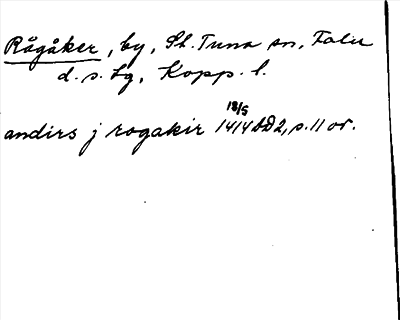 Rågåker, by, St. Tuna sn, Falu
d. s. lg, Kopp. l.
18/5
andirs j rogakir 1414 DD2, s. 11 or.